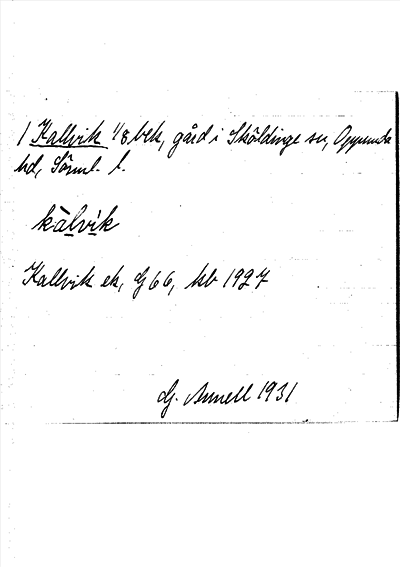 1 Kallvik 1/8 bek, gård i Sköldinge sn, Oppunda
hd, Sörml. l.
kàlvik
Kallvik ek, G 66, kb 1927
G. Annell 1931